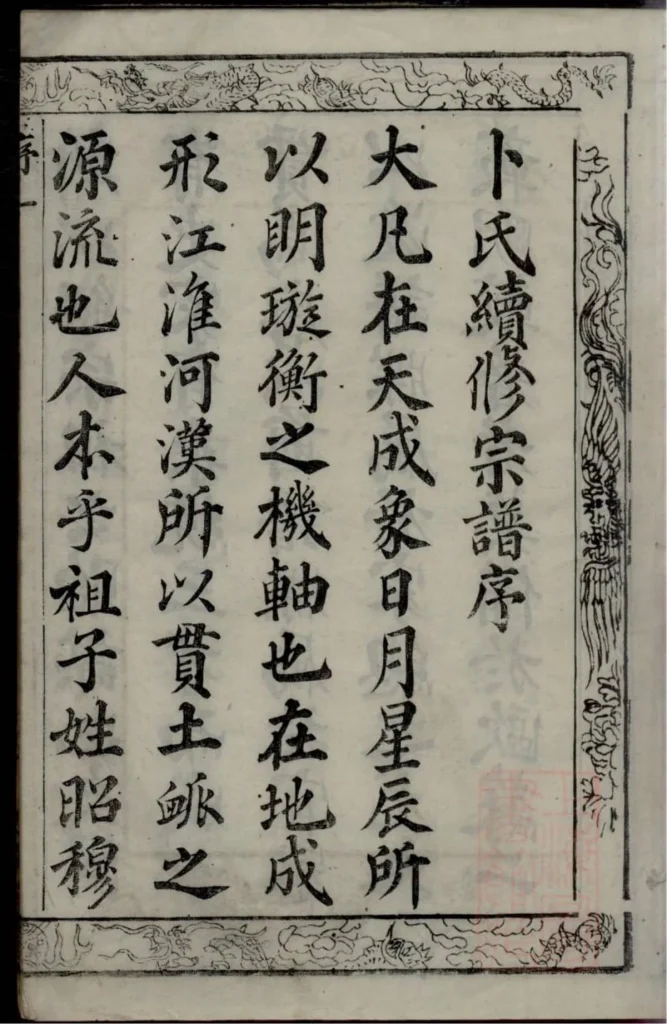 卜氏續修宗譜序
大凡在天成象日月星辰所
以明璇衡之機軸也在地成
形江淮河漢所以貫土脈之
源流也人本乎祖子姓昭穆
序一